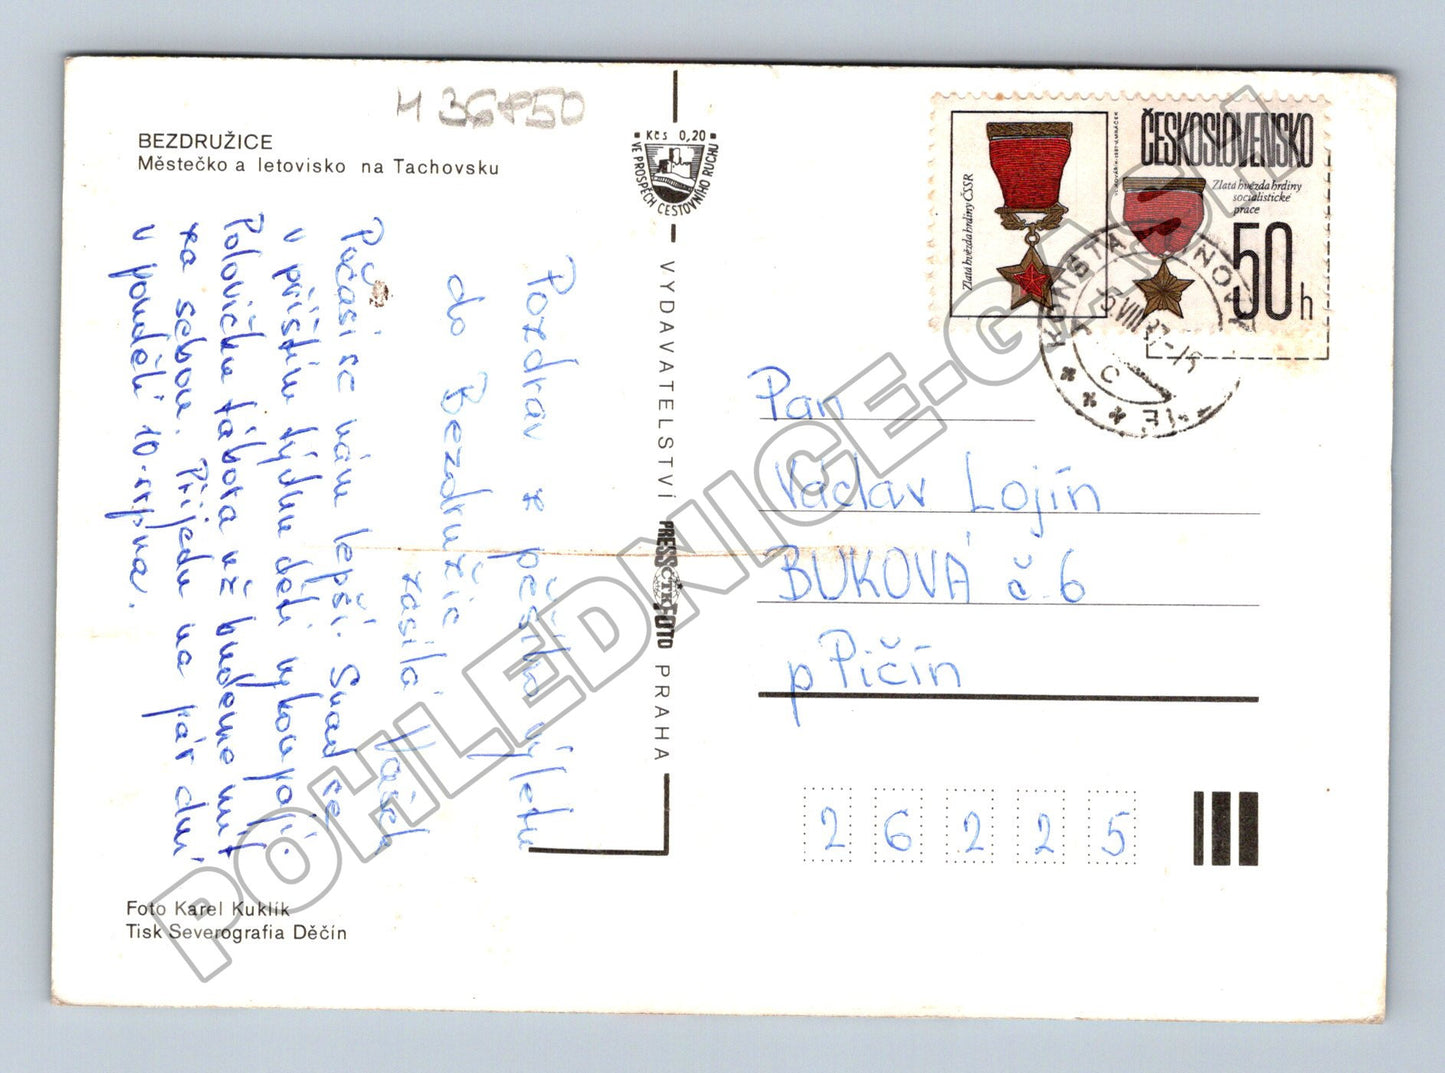 M 36850
BEZDRUŽICE
Městečko a letovisko na Tachovsku
Pozdrav z pěšího výletu
do Bezdružic
zasílá Vašek
Počasí se nám lepší. Snad se
v příštím týdnu děti vykoupají.
Polovičku tábora už budeme mít
za sebou. Přijedu na pár dní
v pondělí 10. srpna.
Foto Karel Kuklík
Tisk Severografia Děčín
Kčs 0,20
VE PROSPĚCH CESTOVNÍHO RUCHU
VYDAVATELSTVÍ PRESSFOTO PRAHA
ČTK
Zlatá hvězda hrdiny ČSSR
ČESKOSLOVENSKO
Zlatá hvězda hrdiny
socialistické
práce
50h
KONSTANTINOVY
VIII.87-15
C
Pan
Václav Lojín
BUKOVÁ č 6
p Pičín
26225
POHLEDNICE-GASH